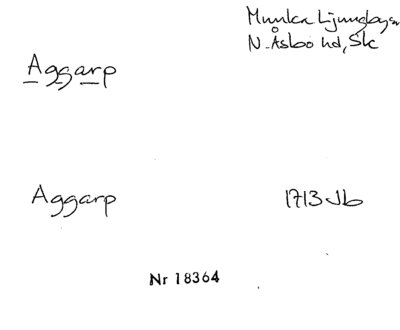 Munka Ljungby sn
N. Åsbo hd, Sk
Aggarp
Aggarp
1713 Jb
Nr 18364